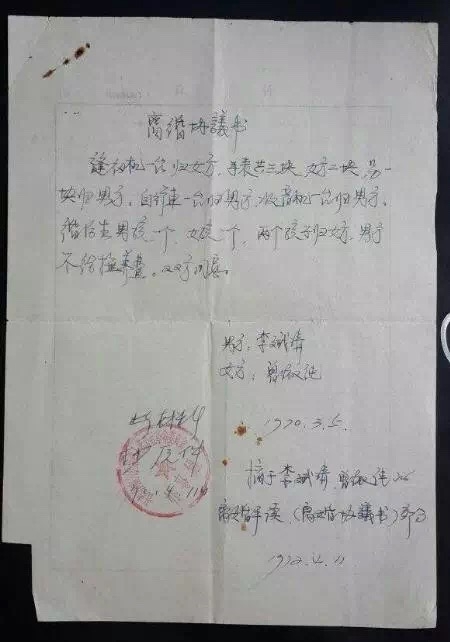 离婚协議书
缝衣机一台归女方，手表共三块，女方二块，另一
块归男方，自行車一台归男方，收音机一台归男方。
婚后生男孩一个，女孩一个，两个孩子归女方，男方
不给抚养费。双方同意。
男方：李斌
女方：曾淑
1970.3.5.
摘于李斌 曾淑
离婚 （离婚协議书）部分
1972.4.11